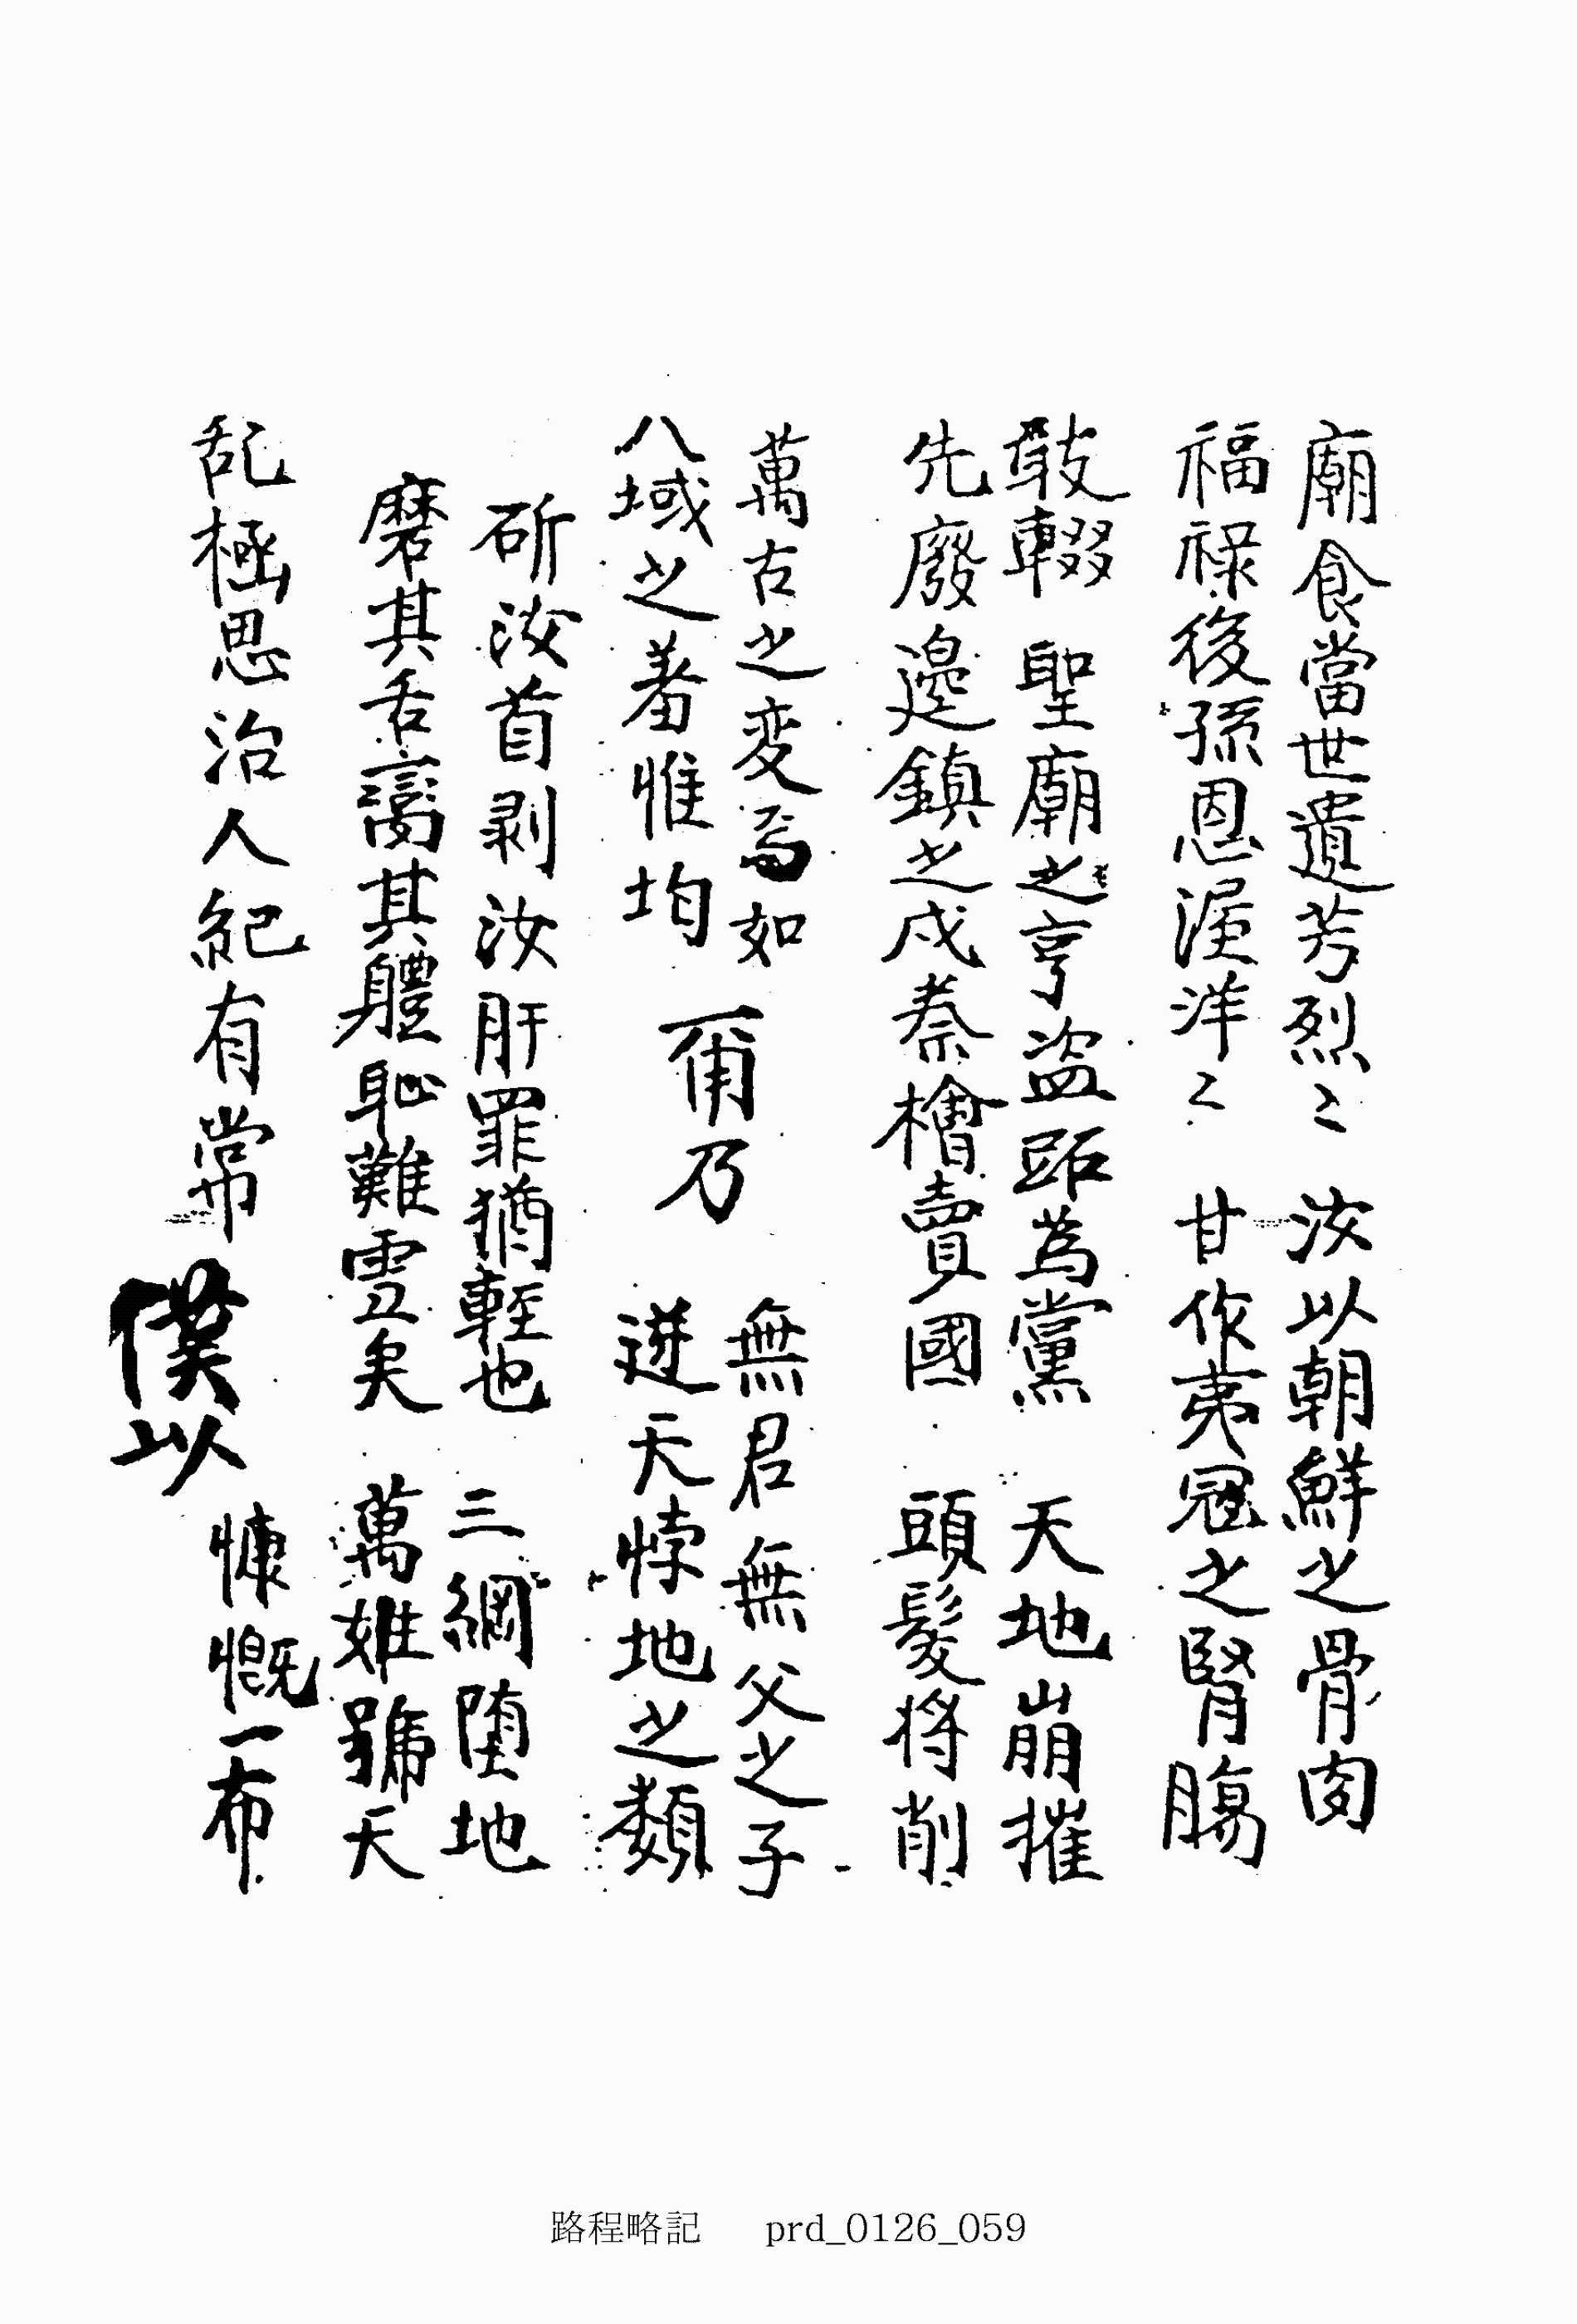 廟食當世遺芳烈〻
福祿後孫恩渥洋〻
汝以朝鮮之骨肉
甘作夷冦之腎腸
敢輟 聖廟之享盜跖為黨
先廢邊鎮之戍秦檜賣國
天地崩摧
頭髮將削
萬古之変焉如
八域之着惟均
爾乃
無君無父之子
逆天悖地之類
斫汝首剥汝肝罪猶輕也
磨其舌臠其軆恥難雪矣
三綱堕地
萬姓號天
乱極思治人紀有常
僕以
慷慨一布
路程略記 prd_0126_059